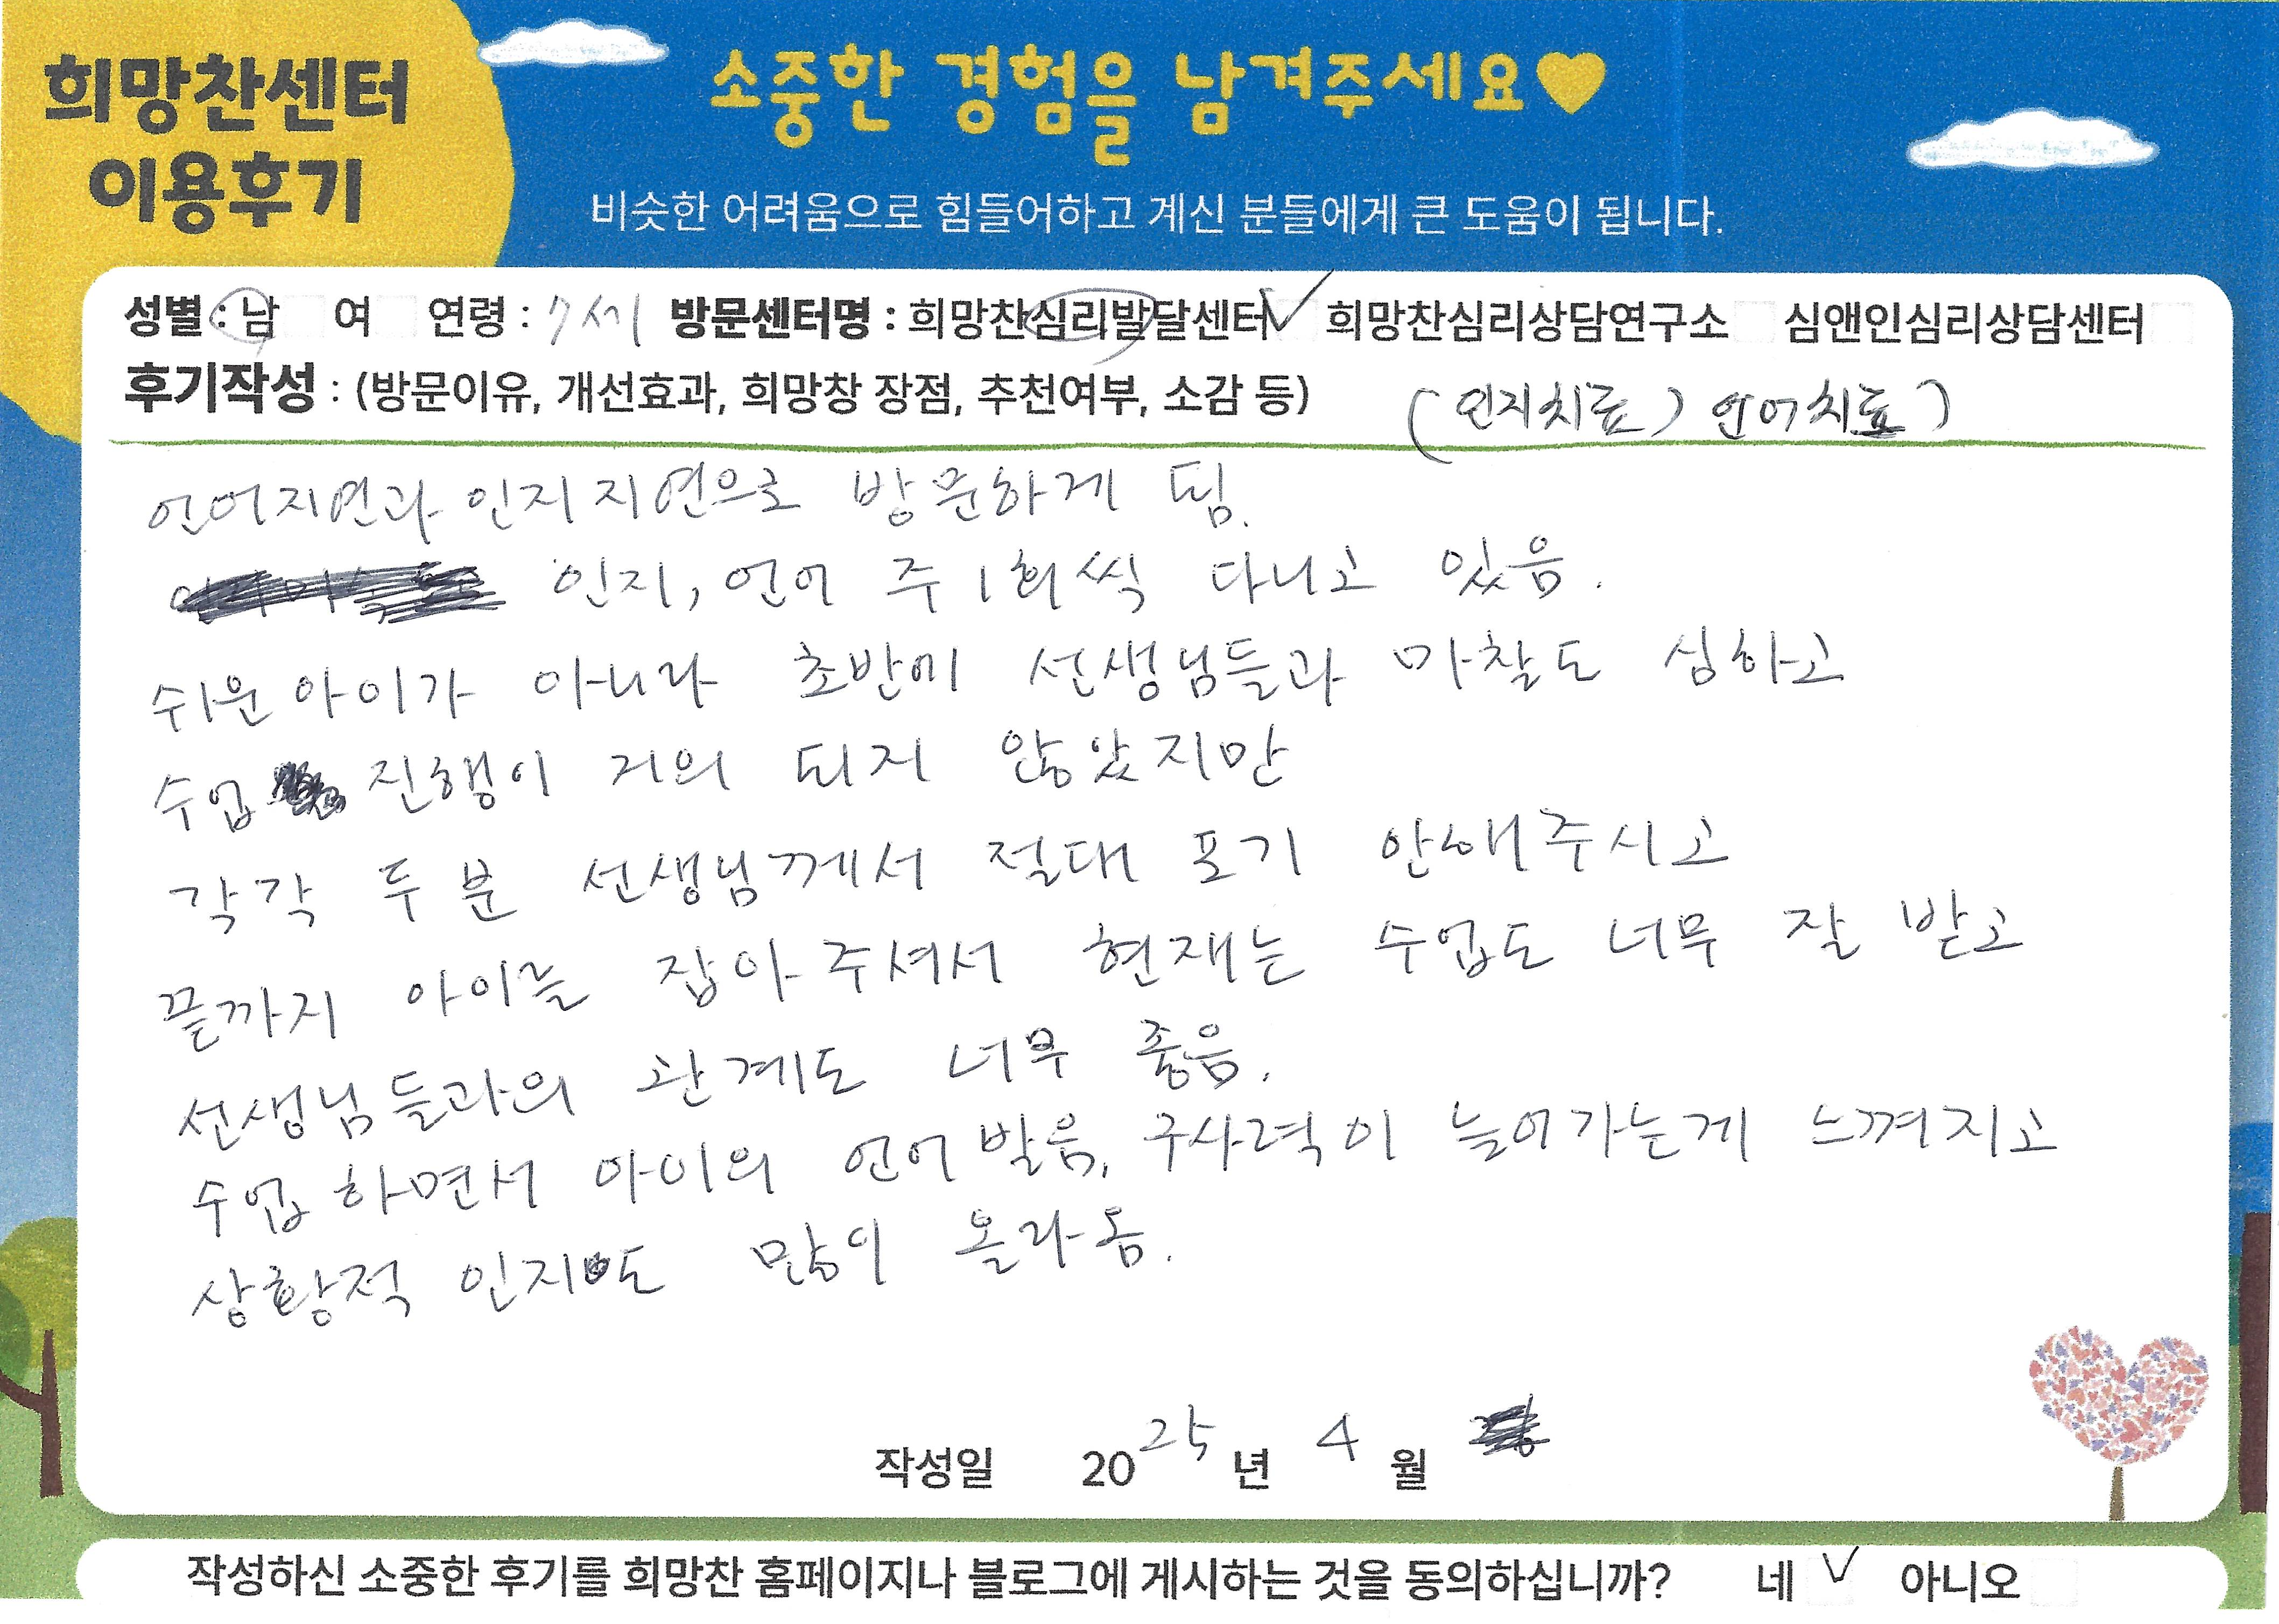 희망찬센터
이용후기
소중한 경험을 남겨주세요♥
비슷한 어려움으로 힘들어하고 계신 분들에게 큰 도움이 됩니다.
성별 : 남 여 연령 : 7세 방문센터명 : 희망찬심리발달센터 ✓ 희망찬심리상담연구소 심앤인심리상담센터
후기작성 : (방문이유, 개선효과, 희망창 장점, 추천여부, 소감 등) (인지치료) 언어치료)
언어지연과 인지지연으로 방문하게 됨.
인지, 언어 주 1회씩 다니고 있음.
쉬운 아이가 아니라 초반에 선생님들과 마찰도 심하고
수업 진행이 거의 되지 않았지만
각각 두 분 선생님께서 절대 포기 안해주시고
끝까지 아이를 잡아주셔서 현재는 수업도 너무 잘 받고
선생님들과의 관계도 너무 좋음.
수업 하면서 아이의 언어 발음, 구사력이 늘어가는게 느껴지고
상황적 인지도 많이 올라옴.
작성일 2025년 4월
작성하신 소중한 후기를 희망찬 홈페이지나 블로그에 게시하는 것을 동의하십니까? 네 ✓ 아니오